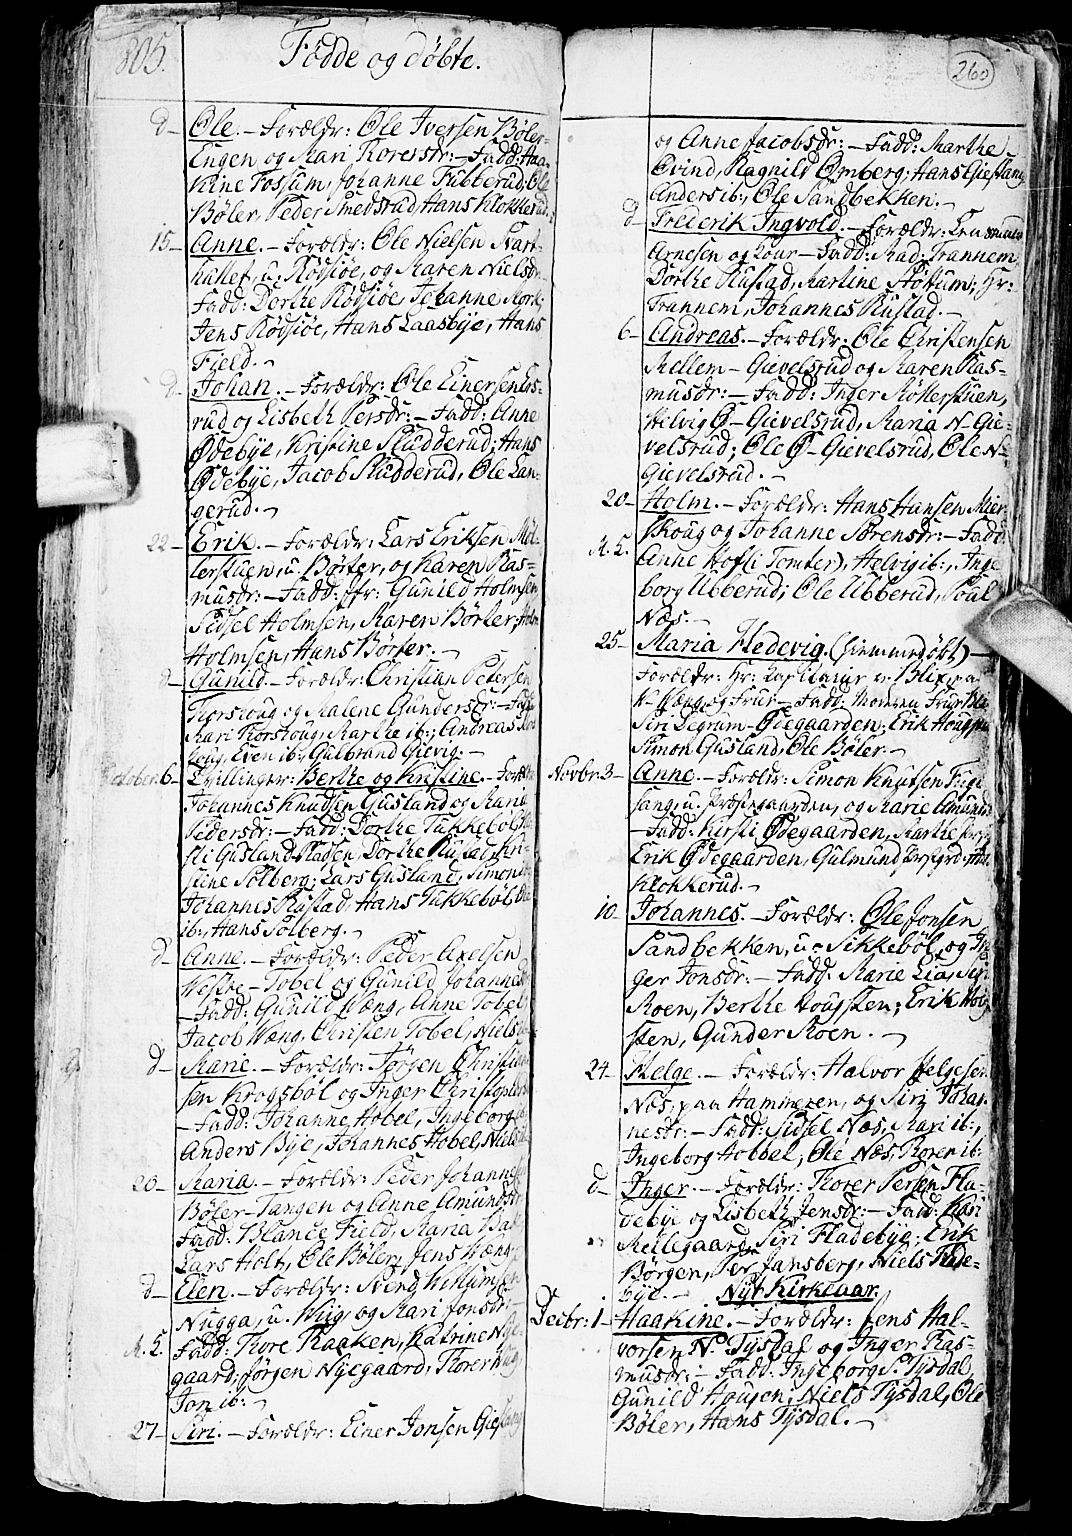 805.
Fødde og døbte.
d- Ole. - Forældr: Ole Iversen Bøler-
Engen og Mari Torersdr: - Fadd: Haa-
kine Fossum, Johanne Tubberud, Ole
Bøler, Peder Smedsrud, Hans Klokkerud.
15- Anne. - Forældr: Ole Nielsen Svart-
kullet, u. Rødsiøe, og Maren Nielsdr.
Fadd: Dorthe Rødsiøe, Johanne Mork
Jens Rødsiøe, Hans Laasbye, Hans
Field. -
d- Johan. - Forældr: Ole Einersen Los-
rud og Lisbeth Persdr: - Fadd: Anne
Ødebye, Kristine Sludderud; Hans
Ødebye, Jacob Sludderud, Ole Lan-
gerud. -
22- Erik. - Forældr: Lars Eriksen Møl-
lerstuen, u. Børter, og Karen Ras-
musdr: - Fadd: Gunild Holmsen
Sidsel Holmsen, Maren Børter, Holm
Holmsen, Hans Børter. -
d- Gunild. - Forældr: Christian Petersen
Torskoug og Malene Gundersdr: -
Mari Torskoug, Marthe ib:, Andreas
Even ib:, Gulbrand Gievig. -
October. 6- Tvillinger: Berthe og Kristine. - Foræl
Johannes Knudsen Gusland og Marie
Pedersdr: - Fadd: Dorthe Tukkebøl,
sti Gusland-Pladsen, Dorthe Rustad,
stine Solberg; Lars Gusland, Simon
Johannes Rustad, Hans Tukkebøl,
ib:, Hans Solberg. -
d- Anne. - Forældr: Peder Axelsen
Westre-Tobel og Gunild Johannes
- Fadd: Gunild Wæng, Anne Tobel
Jacob Wæng, Christen Tobel, Niels
d- Marie. - Forældr: Jørgen Christian
sen Krogsbøl og Inger Christophers
- Fadd: Johanne Hobel, Ingeborg
Anders Bye, Johannes Hobel, Niels
20- Maria. - Forældr: Peder Johannes
Bøler-Tangen og Anne Amundsdr
Fadd: Blance Field, Maria
Lars Holt, Ole Bøler, Jens Wæng.
d- Elen. - Forældr: Svend Willumsen
Nugga, u. Wiig, og Mari Jonsdr:
A. L. Fadd: Thore Raaken, Katrine Nye
gaard; Jørgen Nyegaard, Thorer
Jon ib: -
27- Siri. - Forældr: Einer Jonsen Giestang
260
og Anne Jacobsdr: - Fadd: Marthe
Evind, Ragnild Omberg; Hans Giestang
Anders ib:, Ole Sandbekken. -
d- Frederik Ingvold. - Forældr:
Arnesen og - Fadd: Mad: Trannem
Dorthe Rustad, Martine Slottum; Hr:
Trannem, Johannes Rustad. -
6- Andreas. - Forældr: Ole Christensen
Mellem-Gievelsrud og Maren Ras-
musdr: - Fadd: Inger Møllerstuen,
Helvig Ø-Gievelsrud, Maria N-Gie-
velsrud; Ole Ø-Gievelsrud, Ole N-
Gievelsrud. -
20- Holm. - Forældr: Hans Hansen Mier-
skoug og Johanne Sørensdr: - Fadd:
A. L. Anne Hof (i Tomter), Helvig ib:, Inge
borg Ubberud; Ole Ubberud, Poul
Næs. -
25- Maria Hedevig. (hjemmedøbt) -
Forældr: Hr: Kapitainr v: Blix, paa
W-Wæng og Frue - Fadd:
Siri Degrum-Ødegaarden; Erik Hougsten
Simon Gusland, Ole Bøler. -
Novbr: 3- Anne. - Forældr: Simon Knutsen
sang, u. Præstegaarden, og Marie Amunds
- Fadd: Kirsti Ødegaarden, Marthe
Erik Ødegaarden, Gulmund Prstgrd:,
Klokkerud. -
10- Johannes. - Forældr: Ole Jonsen
Sandbekken, u. Sikkebøl, og In-
ger Jonsdr: - Fadd: Marie Lia, Siri
Moen, Berthe Hougsten; Erik Houg-
sten, Gunder Moen. -
24- Helge. - Forældr: Halvor Helgesen
Næs, paa Hammeren, og Siri Johan-
nesdr: - Fadd: Sidsel Næs, Mari ib:,
Ingeborg Hobbel; Ole Næs, Thorer ib:
d- Inger. - Forældr: Thorer Persen Fla-
debye og Lisbeth Jensdr: - Fadd: Kari
Mellegaard, Siri Fladebye; Erik
Børgen, Per Jansberg, Niels Flade-
bye. - Nyt Kirkeaar.
Decbr: 1- Haakine. - Forældr: Jens Hal-
vorsen N. Tysdal og Inger Ras-
musdr: - Fadd: Ingeborg S. Tysdal,
Gunild Hougen; Niels Tysdal, Ole
Bøler, Hans Tysdal. -